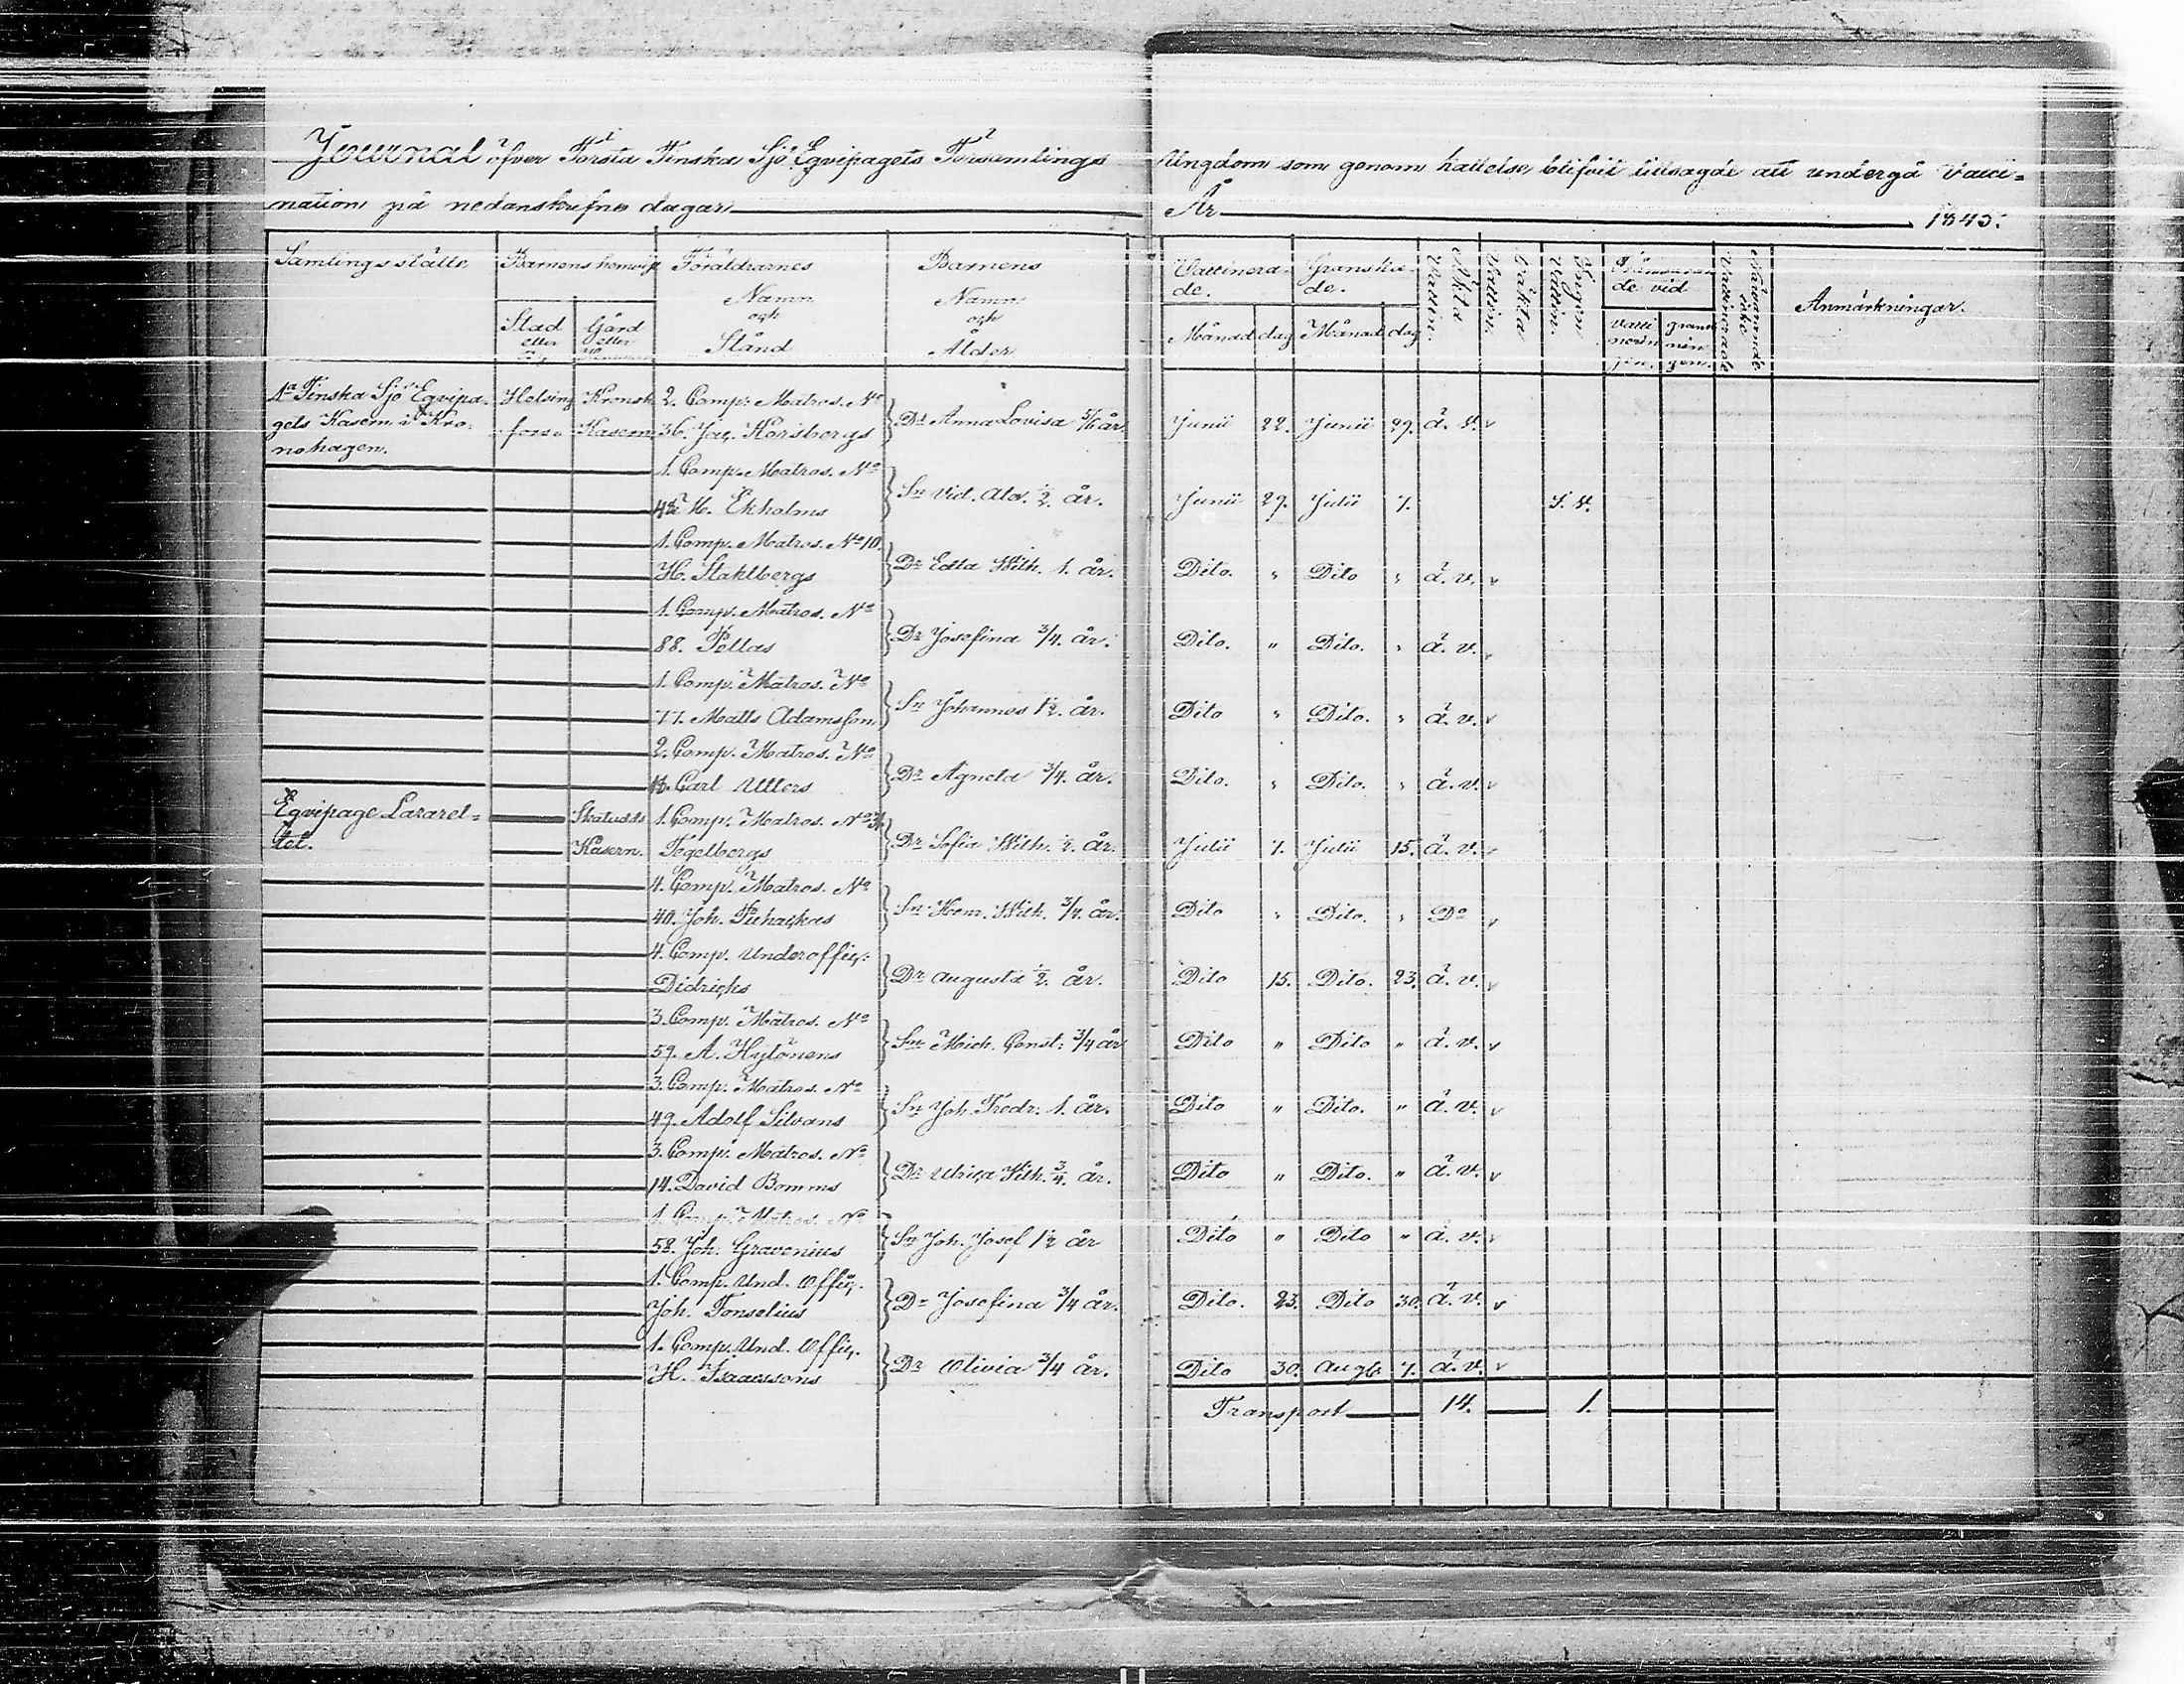 Journal öfver Första Finska Sjö Eqvipagets Församlings Ungdom som genom kallelse blifvit tillsagde att undergå Vacci=
nation på nedanskrefne dagar År 1843.
Samlings ställe Barnens hemvist Föräldrarnes Barnens Vaccinera- Granska- Äkta Oäkta Ingen Närvaran Närvarande Anmärkningar.
Namn Namn de. de. Vaccin. Vaccin. Vaccin. de vid icke
Stad Gård och och Vaccinerade
eller eller Stånd Ålder Månad dag Månad dag vacci gransk
By nerin nin
gen. gen.
1a Finska Sjö Eqvipa- Helsing Krono 2. Comp. Matros. No
gets Kasern i Kro- fors. Kasern 36. Jac. Korsbergs Dr Anna Lovisa 5/6 år. Junii 22. Junii 29. ä. v.
nohagen.
1. Comp. Matros. No
45 M. Ekholms Sn Vict. Alex. 1/2 år. Junii 29. Julii 7. i. v.
1. Comp. Matros. No 10.
H. Stahlbergs Dr Edla Wilh. 1. år. Dito. " Dito " ä. v.
1. Comp. Matros. No
88. Pellas Dr Josefina 3/4. år. Dito. " Dito. " ä. v.
1. Comp. Matros. No
77. Matts Adamsson Sn Johannes 1 1/2. år. Dito " Dito. " ä. v.
2. Comp. Matros. No
Carl Ullers Dr Agneta 3/4. år. Dito. " Dito. " ä. v.
Eqvipage Lazaret= Skatudds 1. Comp. Matros. No
tet. Kasern. Tegelbergs Dr Sofia Wilh. 1/2. år. Julii 7. Julii 15. ä. v.
4. Comp. Matros. No
40. Joh. Puhackas Sn Herm. Wilh. 3/4 år. Dito " Dito. " Do
4. Comp. Underoffic:
Didricks Dr Augusta 1/2. år. Dito 15. Dito. 23. ä. v.
3. Comp. Matros. No
59. A. Hytönens Sn Mich. Const: 3/4 år Dito " Dito " ä. v.
3. Comp. Matros. No
49. Adolf Silvans Sn Joh. Fredr. 1. år. Dito " Dito. " ä. v.
3. Comp. Matros. No
14. David Bomms Dr Ulrica Wilh. 3/4. år. Dito " Dito. " ä. v.
1. Comp. Matros. No
52. Joh. Gravenius Sn Joh. Josef 1 1/2 år Dito " Dito " ä. v.
1. Comp. Und. Offic.
Joh. Fonselius Dr Josefina 3/4 år. Dito. 23. Dito 30. ä. v.
1. Comp. Und. Offic.
H. Isacssons Dr Olivia 3/4 år. Dito 30. Augti 7. ä. v.
Transport 14. 1.